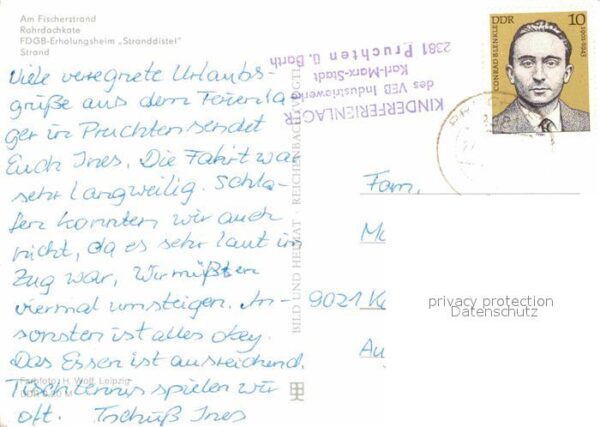 Am Fischerstrand
Rohrdachkate
FDGB-Erholungsheim „Stranddistel“
Strand
Viele veregnete Urlaubs-
grüße aus dem Ferienla-
ger in Pruchten sendet
Euch Ines. Die Fahrt war
sehr langweilig. Schla-
fen konnten wir auch
nicht, da es sehr laut im
Zug war. Wir mußten
viermal umsteigen. An-
sonsten ist alles okey.
Das Essen ist ausreichend.
Tischtennis spielen wir
oft. Tschüß Ines
Farbfoto: H. Wolf, Leipzig
BILD UND HEIMAT · REICHENBACH (VOGTL)
KINDERFERIENLAGER
des VEB Industriewerke
Karl-Marx-Stadt
2381 Pruchten ü. Barth
DDR 10
CONRAD BLENKLE 1901-1943
Fam.
9021 K
privacy protection
Datenschutz